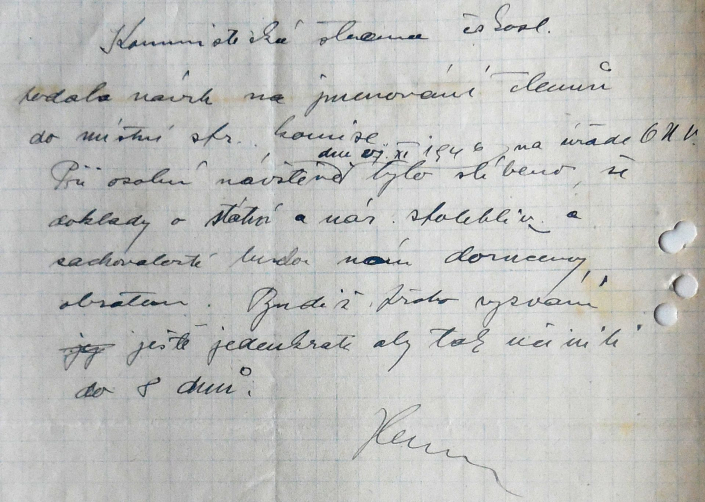 Komunistická strana čskosl.
podala návrh na jmenování členů
do místní spr. komise
dne XI 1946 na úřadě ONV.
Při osobní návštěvě bylo slíbeno, že
doklady o státní a nár. spolehliv. a
zachovalosti budou nám doručeny
obratem. Budiž proto vyzváni
ještě jedenkrát aby tak učinili
do 8 dnů.